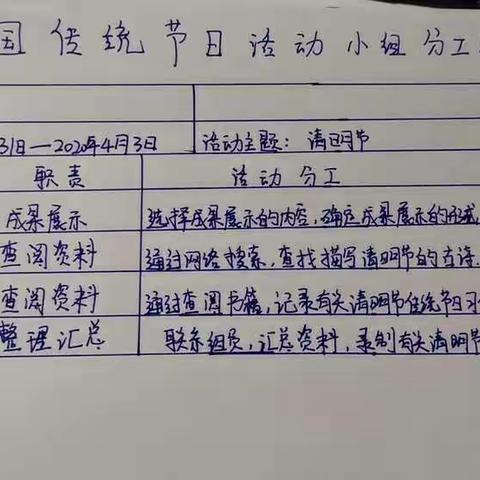 国传统节日活动小组分工
31日—2020年4月3日 活动主题：清明节
职责 活动分工
成果展示 选择成果展示的内容，确定成果展示的形式
查阅资料 通过网络搜索，查找描写清明节的古诗
查阅资料 通过查阅书籍，记录有关清明节传统节日习
整理汇总 联系组员，汇总资料，录制有关清明节